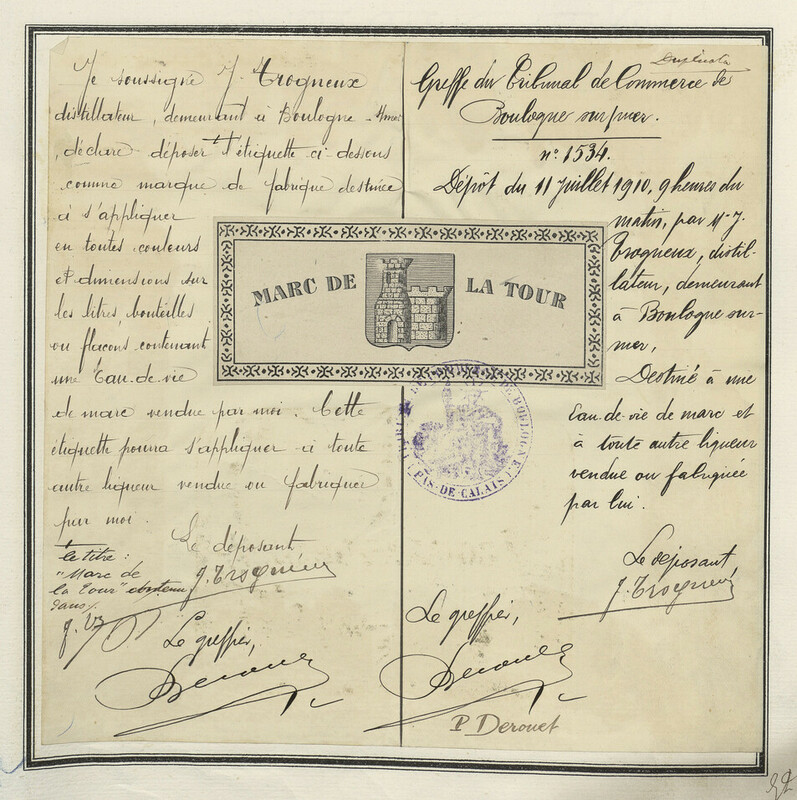 Je soussigné J. Trogneux
distillateur, demeurant à Boulogne s/mer
, déclare déposer l'étiquette ci-dessous
comme marque de fabrique destinée
à s'appliquer
en toutes couleurs
et dimensions sur
les litres, bouteilles
ou flacons contenant
une Eau-de-vie
de marc vendue par moi. Cette
étiquette pourra s'appliquer à toute
autre liqueur vendue ou fabriquer
par moi.
Le déposant
J. Trogneux
le titre:
"Marc de
la Tour"
dans
Le greffier,
Derouet
MARC DE LA TOUR
Duplicata
Greffe du Tribunal de Commerce de
Boulogne sur mer.
n° 1534.
Dépôt du 11 Juillet 1910, 9 heures du
matin, par Mr J.
Trogneux, distil-
lateur, demeurant
à Boulogne-sur-
mer,
Destiné à une
Eau-de-vie de marc et
à toute autre liqueur
vendue ou fabriquée
par lui.
Le déposant
J. Trogneux
Le greffier,
Derouet
P Derouet
DE BOULOGNE
PAS-DE-CALAIS